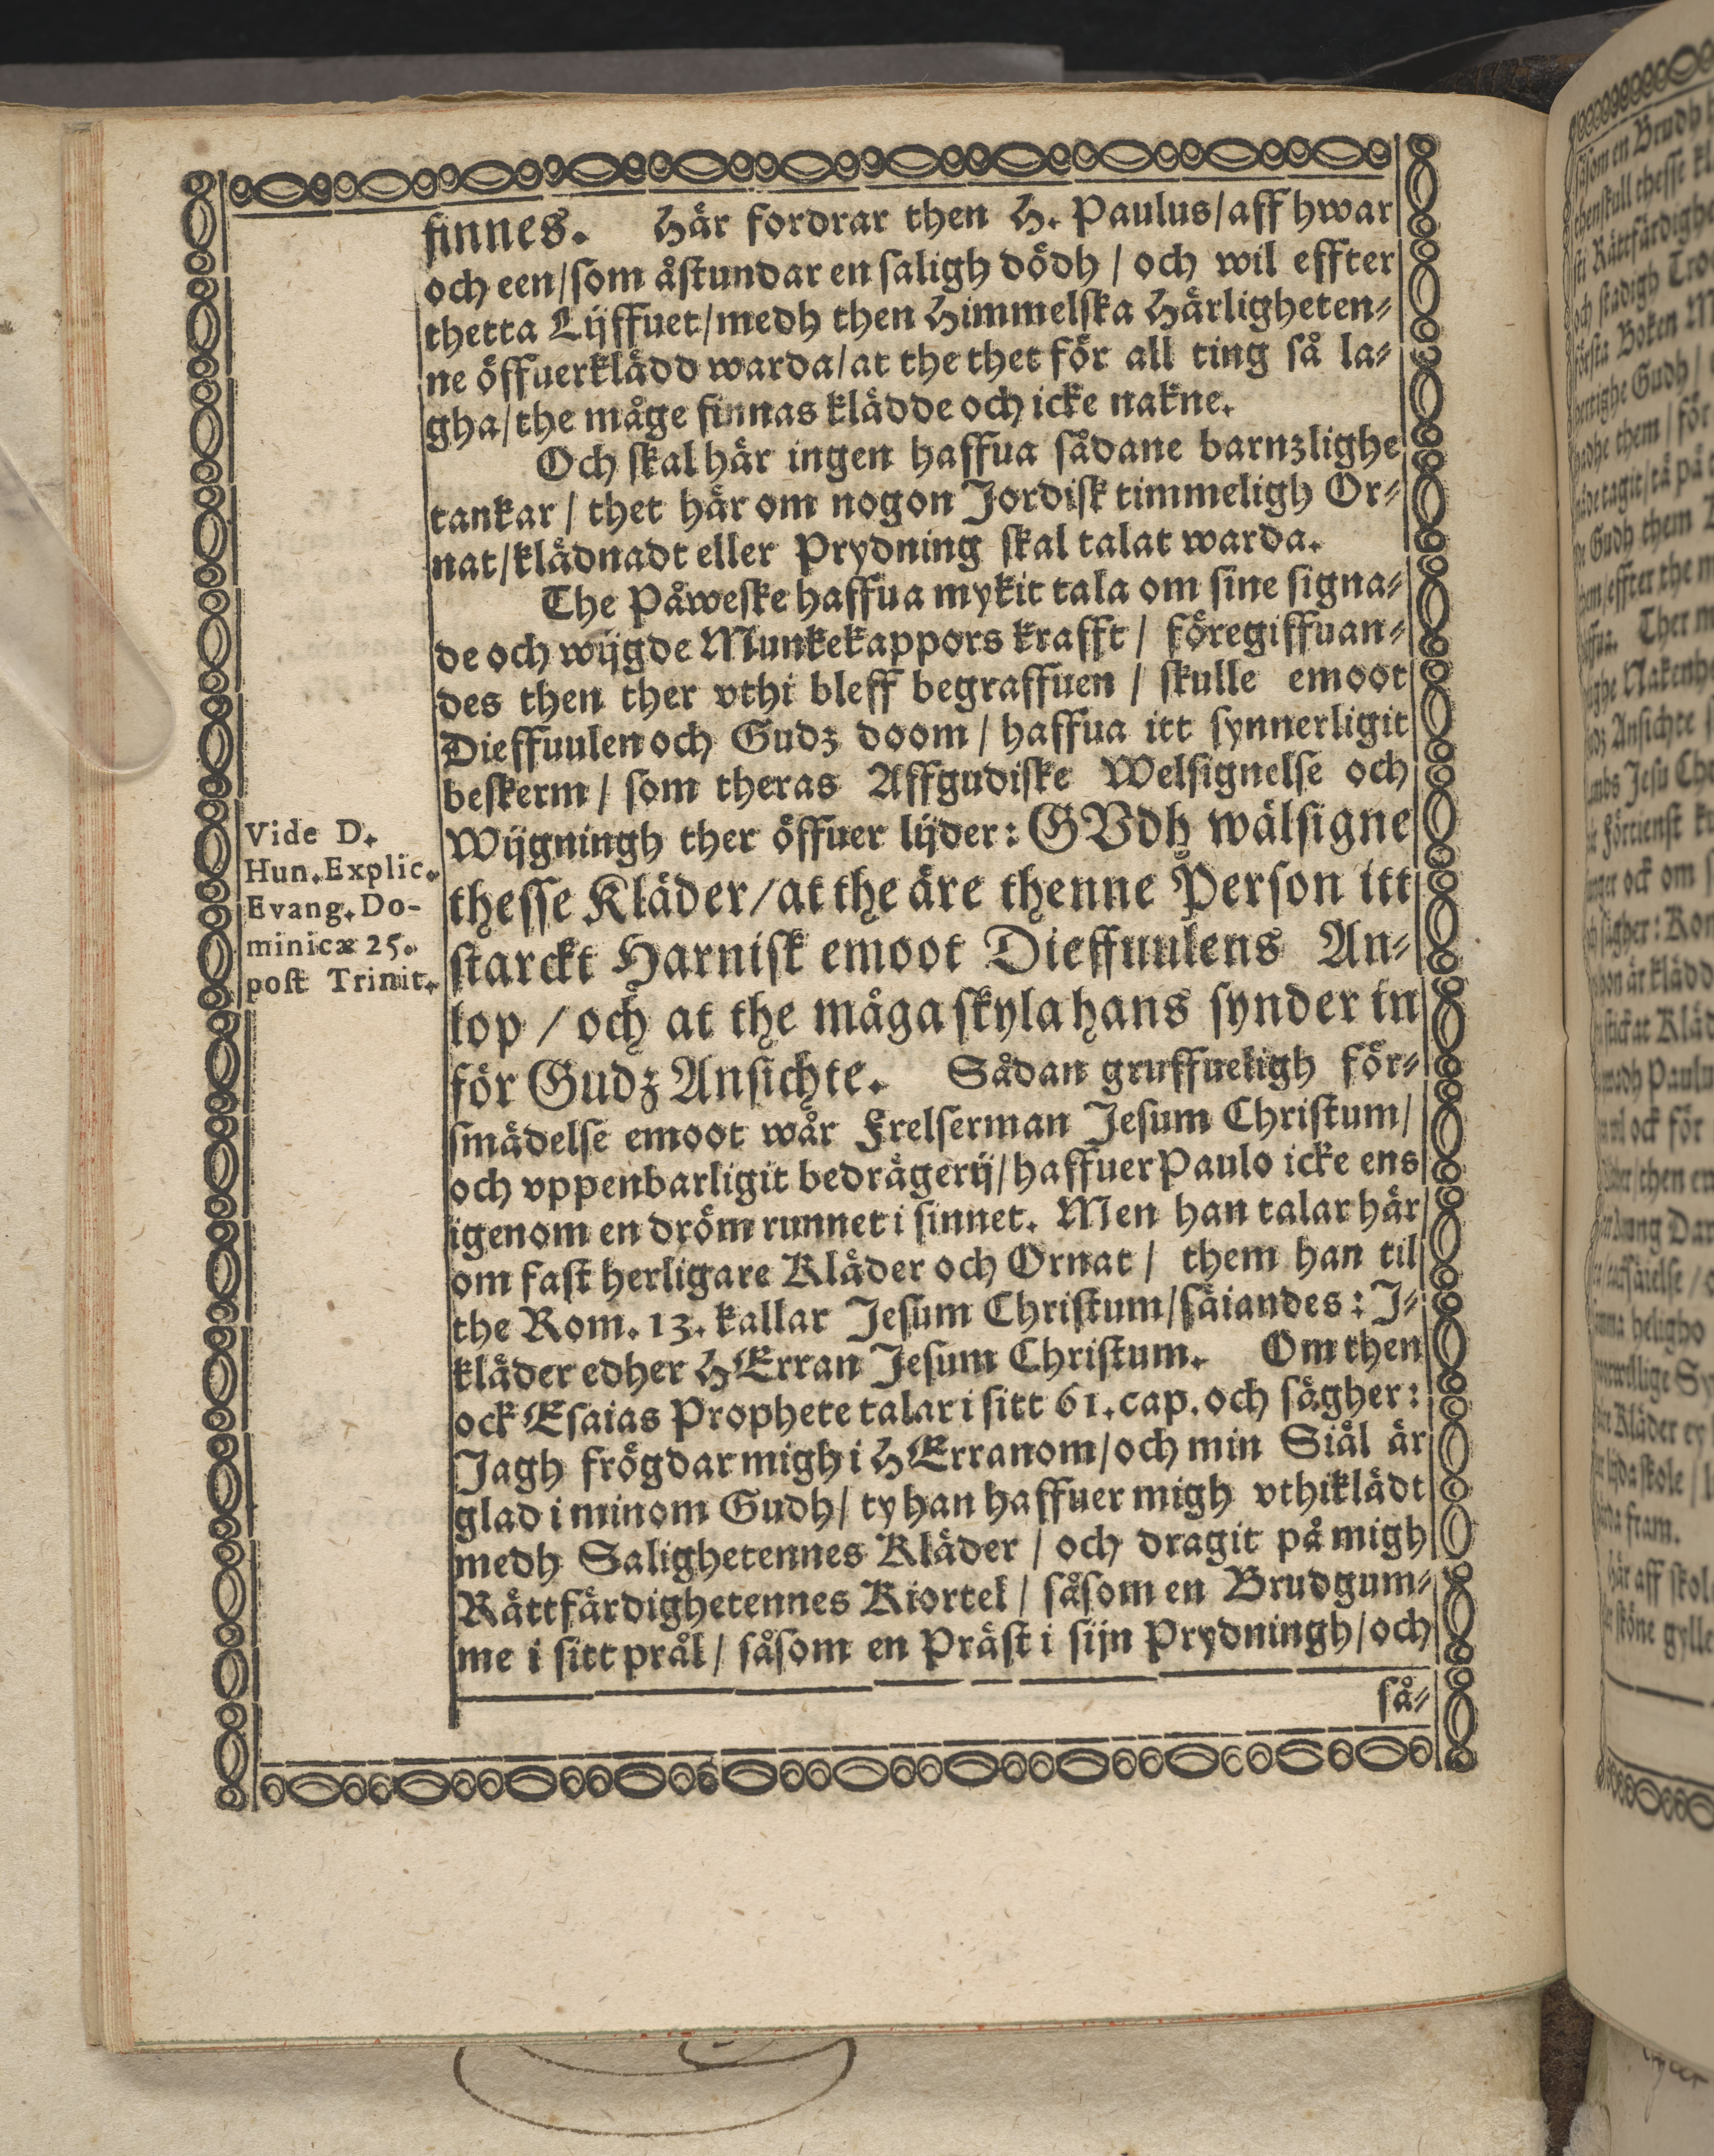 finnes. Här fordrar then H. Paulus/aff hwar
och een/som åstundar en saligh dödh / och wil effter
thetta Lijffuet/medh then Himmelska Härligheten-
ne öffuerklädd warda/at the thet för all ting så la-
gha/the måge finnas klädde och icke nakne.
Och skal här ingen haffua sådane barnzlighe
tankar / thet här om nogon Jordisk timmeligh Or-
nat/klädnadt eller Prydning skal talat warda.
The Påweske haffua mykit tala om sine signa-
de och wijgde Munkekappors krafft / föregiffuan-
des then ther vthi bleff begraffuen / skulle emoot
Dieffuulen och Gudz doom / haffua itt synnerligit
beskerm / som theras Affgudiske Welsignelse och
Wijgningh ther öffuer lijder: GVdh wälsigne
thesse Kläder/at the äre thenne Person itt
starckt Harnisk emoot Dieffuulens An-
lop / och at the måga skyla hans synder in
för Gudz Ansichte. Sådan gruffueligh för-
smädelse emoot wår Frelserman Jesum Christum/
och vppenbarligit bedrägerij/haffuer Paulo icke ens
igenom en dröm runnet i sinnet. Men han talar här
om fast herligare Kläder och Ornat / them han til
the Rom. 13. kallar Jesum Christum/säiandes: J-
kläder edher HErran Jesum Christum. Om then
ock Esaias Prophete talar i sitt 61. cap. och sägher:
Jagh frögdar migh i HErranom/och min Siäl är
glad i minom Gudh/ ty han haffuer migh vthiklädt
medh Salighetennes Kläder / och dragit på migh
Rättfärdighetennes Kiortel / såsom en Brudgum-
me i sitt prål / såsom en Präst i sijn Prydningh/och
så-
Vide D.
Hun. Explic.
Evang. Do-
minicæ 25.
post Trinit.